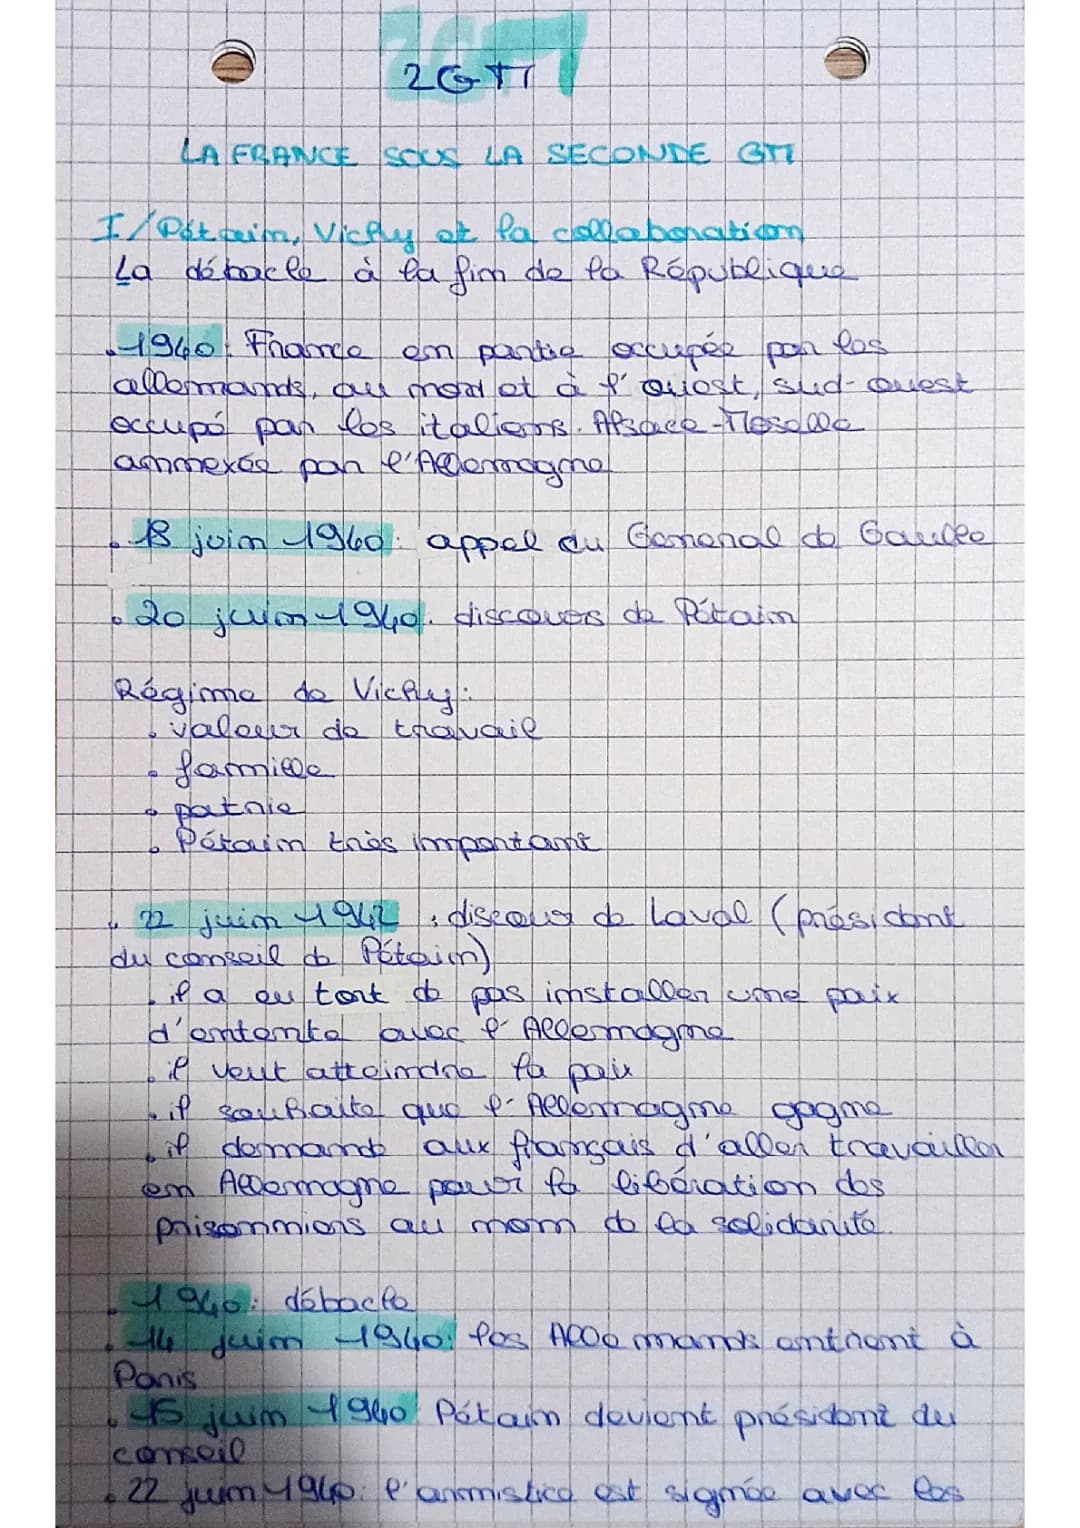 2GM
LA FRANCE SOUS LA SECONDE GM
I/ Pétain, Vichy et la collaboration
La débacle à la fin de la République
. 1940: France en partie occupée par les
allemands, au nord et à l'ouest, sud-ouest
occupé par les italiens. Alsace-Moselle
annexée par l'Allemagne
. 18 juin 1940: appel du General de Gaulle
. 20 juin 1940: discours de Pétain
Régime de Vichy:
. valeur de travail
. famille
. patrie
. Pétain très important
. 22 juin 1942: discour de Laval (président
du conseil de Pétain)
. il a eu tort de pas installer une paix
d'entente avec l'Allemagne
. il veut atteindre la paix
. il souhaite que l'Allemagne gagne
. il demande aux français d'aller travailler
en Allemagne pour la libération des
prisonniers au nom de la solidarité.
. 1940: débacle
. 14 juin 1940: les Allemands entrent à
Paris
. 15 juin 1940 Pétain devient président du
conseil
. 22 juin 1940: l'armistice est signée avec les